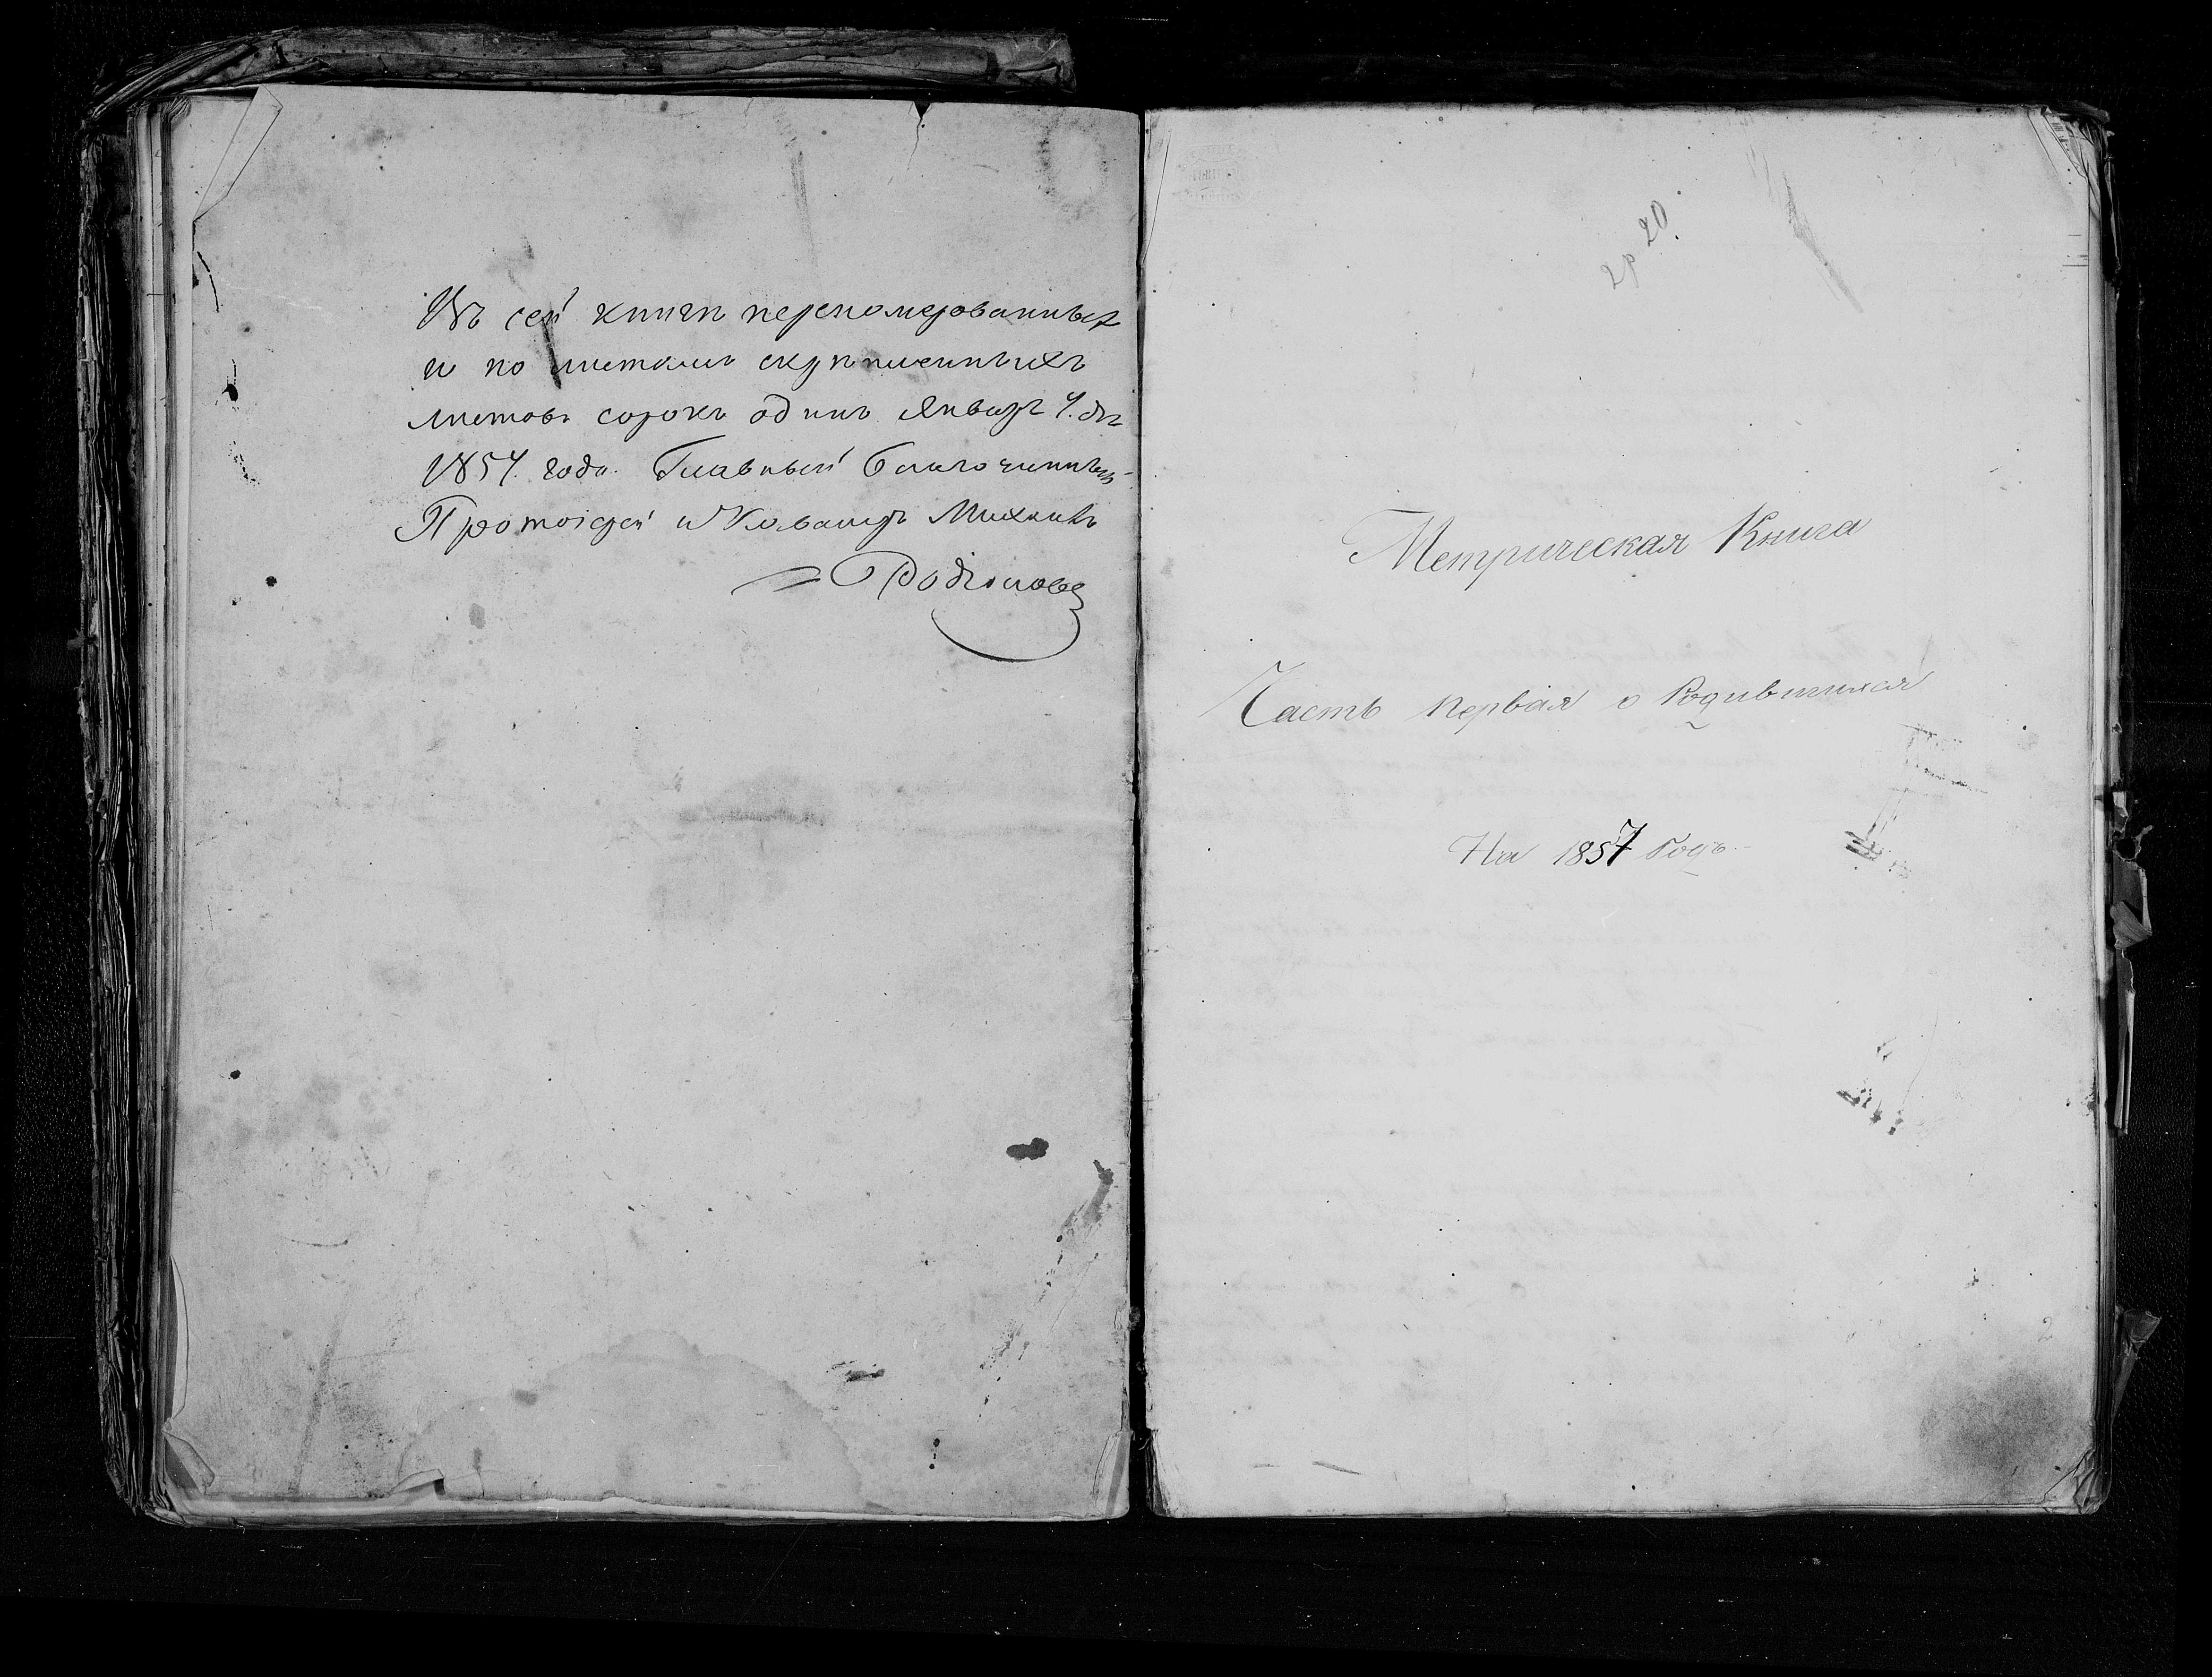 Въ сей книгѣ переномерованныхъ
и по листамъ скрѣпленныхъ
листовъ сорокъ одинъ Январѧ 4. дня
1857. года. Главный Благочинный
Протоіерей и Кавалеръ Михаилъ
Родіоновъ
2р 20.
Метрическая Книга
Часть первая о Родившихся
На 1857 Годъ.
2